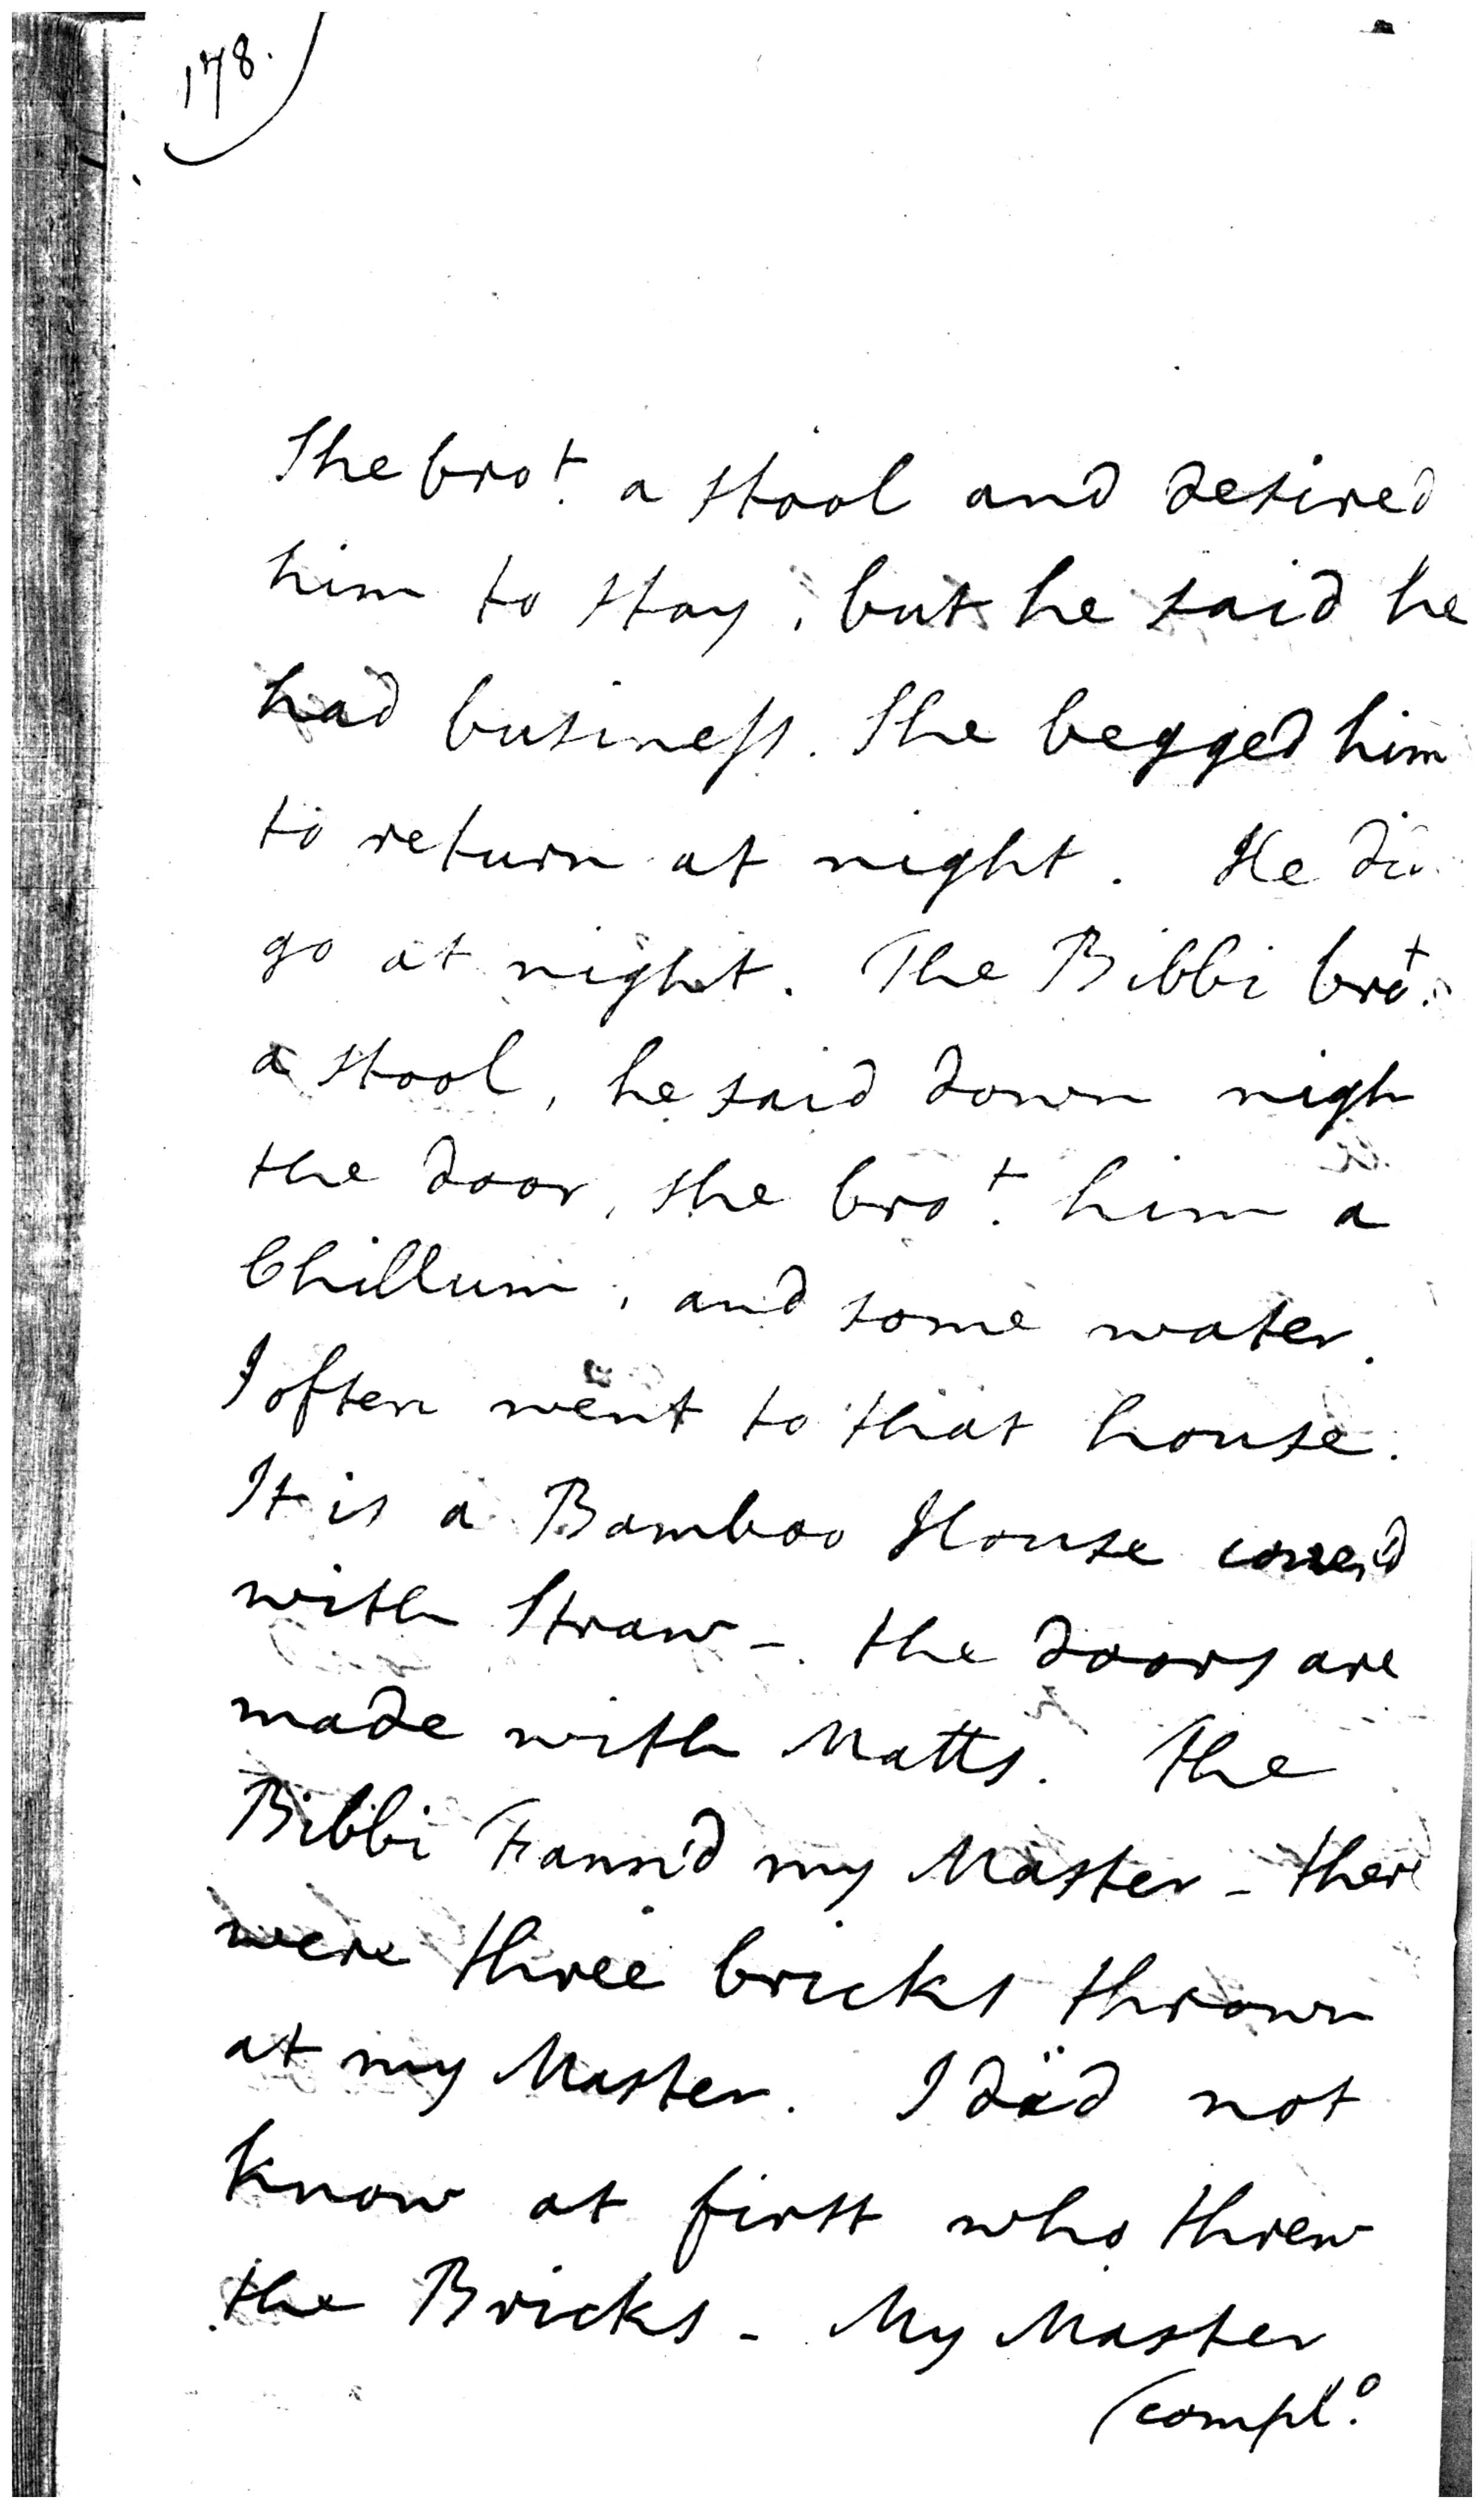 178.
She bro.t a stool and desired
him to stay, but he said he
had business. She begged him
to return at night. He did
go at night. The Bibbi bro.t
a stool, he said down nigh
the door, she bro.t him a
Chillum, and some water.
I often went to that house.
It is a Bamboo House cover'd
with Straw -. the doors are
made with Matts. The
Bibbi Fann'd my Master - there
were three bricks thrown
at my Master. I did not
know at first who threw
the Bricks - My Master
(compl.d